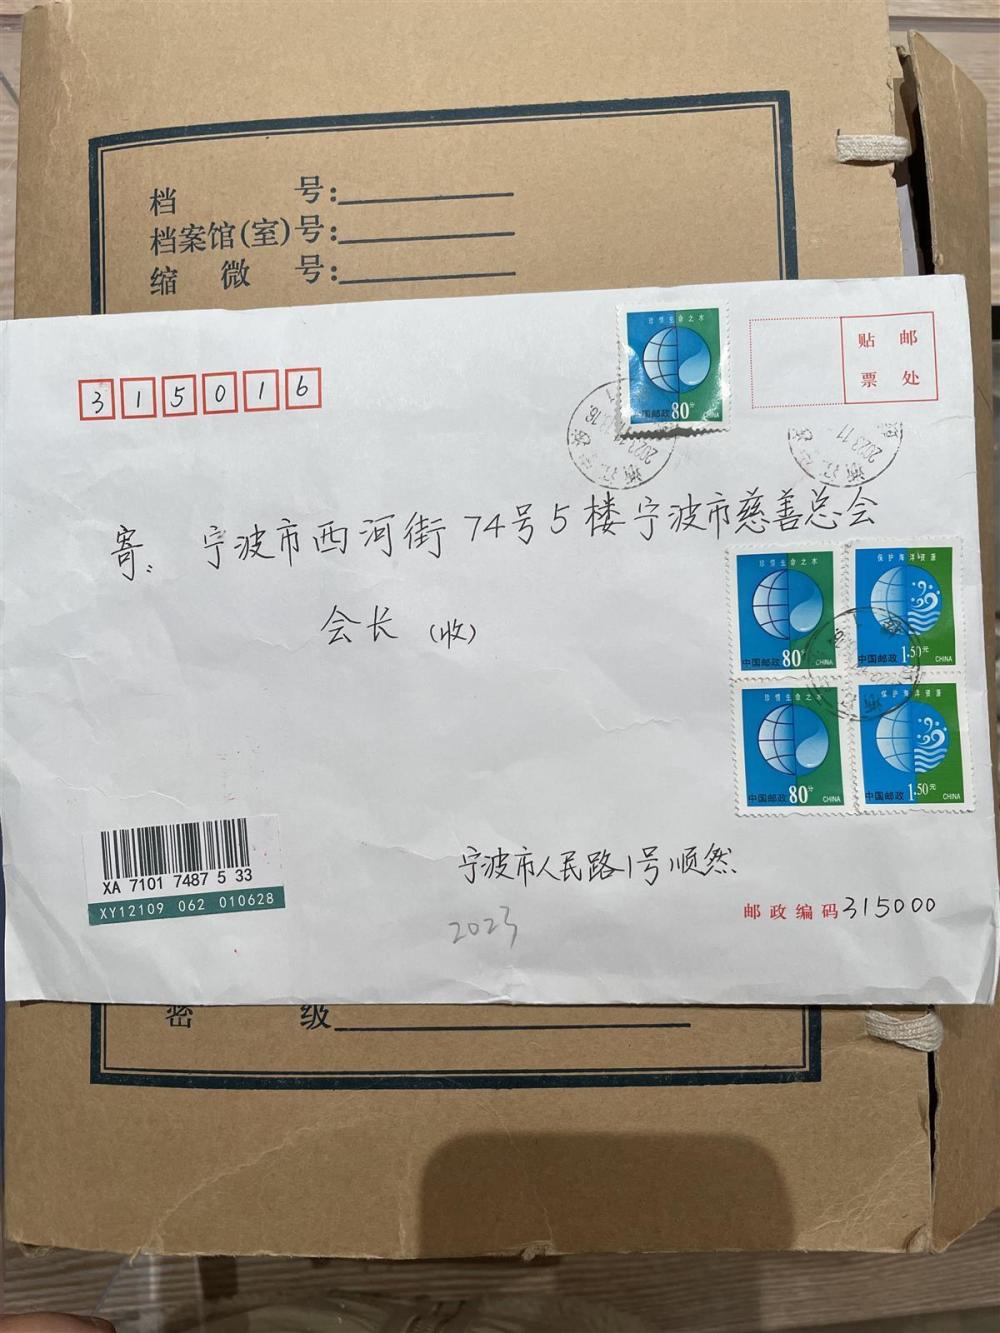 档 号:
档案馆(室)号:
缩 微 号:
珍惜生命之水
中国邮政 80分 CHINA
贴 邮
票 处
315016
2023.11
寄: 宁波市西河街74号5楼宁波市慈善总会
会长 (收)
珍惜生命之水
中国邮政 80分 CHINA
保护海洋资源
中国邮政 1.50元 CHINA
珍惜生命之水
中国邮政 80分 CHINA
保护海洋资源
中国邮政 1.50元 CHINA
XA 7101 7487 5 33
XY12109 062 010628
宁波市人民路1号顺然
邮政编码315000
2023
密 级